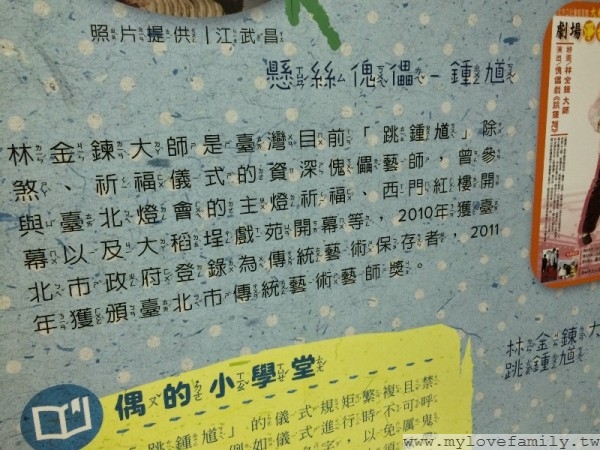 照片提供｜江武昌
懸絲傀儡－鍾馗
林金鍊大師是臺灣目前「跳鍾馗」除
煞、祈福儀式的資深傀儡藝師，曾參
與臺北燈會的主燈祈福、西門紅樓開
幕以及大稻埕戲苑開幕等，2010年獲臺
北市政府登錄為傳統藝術保存者，2011
年獲頒臺北市傳統藝術藝師獎。
劇場
林金鍊大
跳鍾馗
偶的小學堂
跳鍾馗」的儀式規矩繁複且禁
例如儀式進行時不可呼
字，以免厲鬼
www.mylovefamily.tw